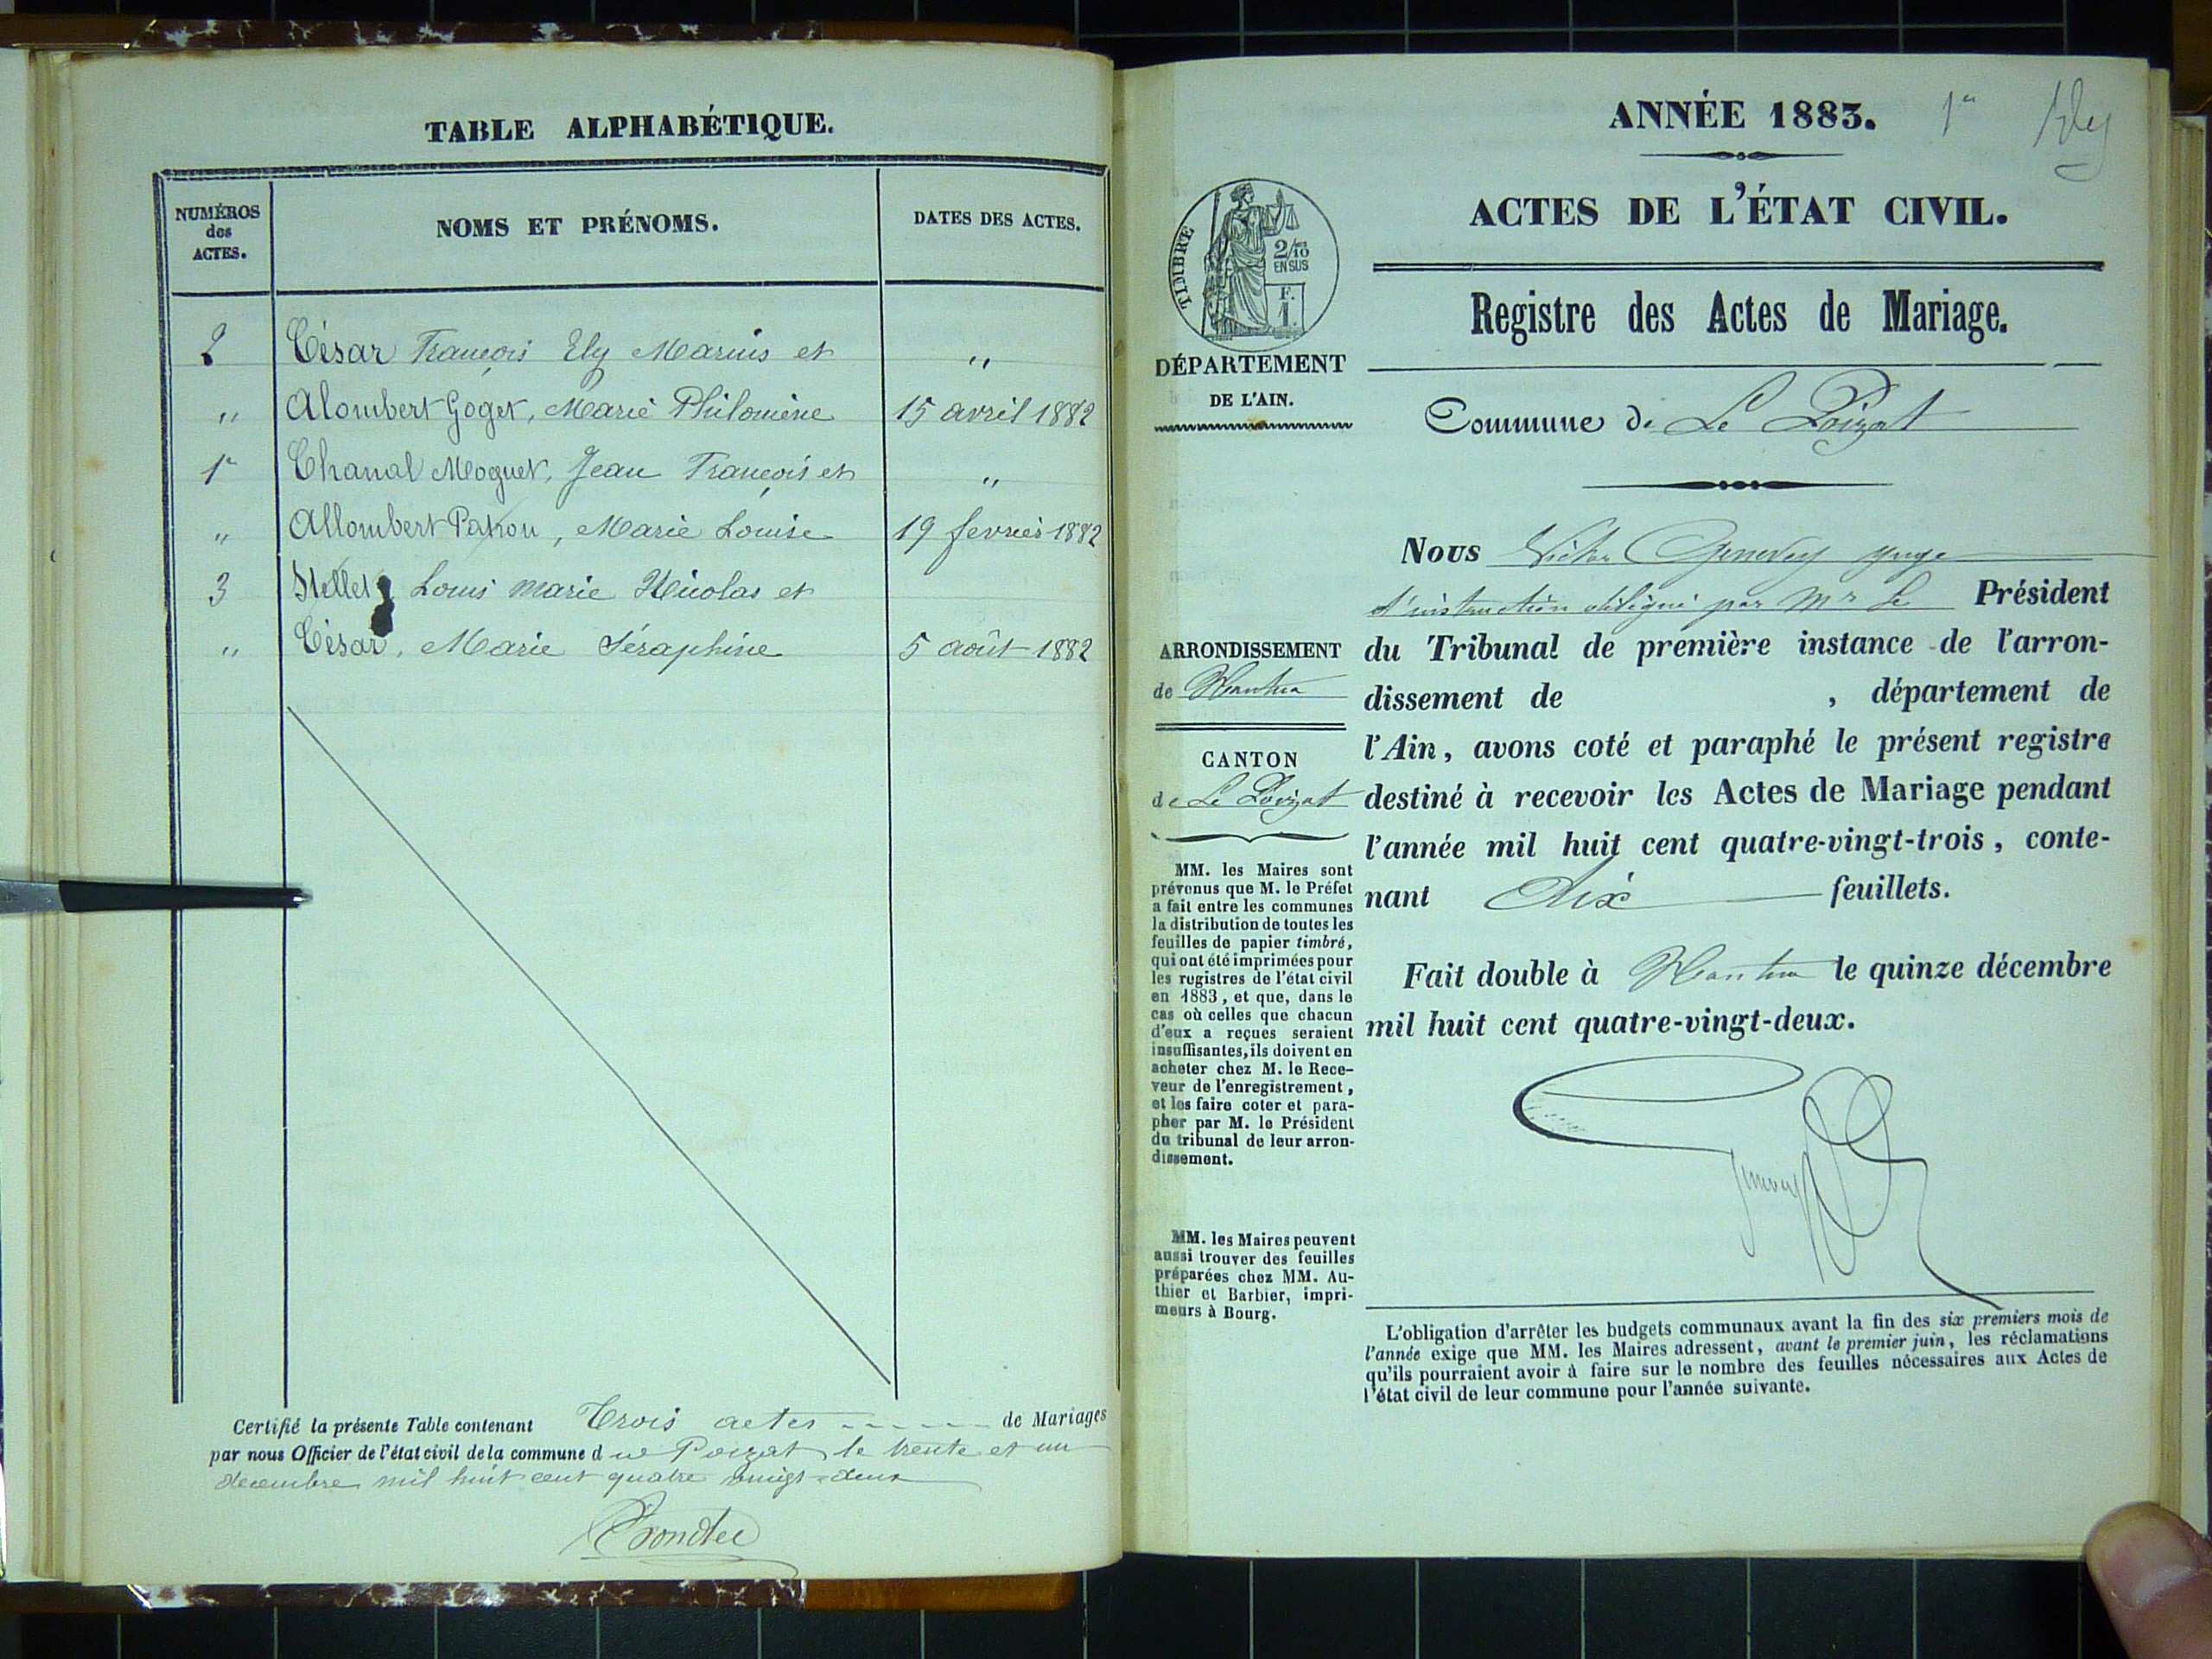 TABLE ALPHABÉTIQUE.
NUMÉROS
des
ACTES.
NOMS ET PRÉNOMS.
DATES DES ACTES.
2 César François Ely Marius et "
" Alombert Goget, Marie Philomène 15 avril 1882
1r Chanal Moguet, Jean François et "
" Allombert Patron, Marie Louise 19 fevrier 1882
3 Louis marie Nicolas et
" César, Marie Séraphine 5 août 1882
Certifié la présente Table contenant Trois actes de Mariages
par nous Officier de l'état civil de la commune d Poizat le trente et un
decembre mil huit cent quatre vingt-deux
ANNÉE 1883.
ACTES DE L'ÉTAT CIVIL.
Registre des Actes de Mariage.
TIMBRE
2/10
EN SUS
F.
1.
DÉPARTEMENT
DE L'AIN.
Commune de Le Poizat
Nous Victor Genevey juge
d'instruction délégué par Mr le Président
du Tribunal de première instance de l'arron-
dissement de , département de
l'Ain, avons coté et paraphé le présent registre
destiné à recevoir les Actes de Mariage pendant
l'année mil huit cent quatre-vingt-trois, conte-
nant dix feuillets.
Fait double à Nantua le quinze décembre
mil huit cent quatre-vingt-deux.
ARRONDISSEMENT
de Nantua
CANTON
de Le Poizat
MM. les Maires sont
prévenus que M. le Préfet
a fait entre les communes
la distribution de toutes les
feuilles de papier timbré,
qui ont été imprimées pour
les registres de l'état civil
en 1883, et que, dans le
cas où celles que chacun
d'eux a reçues seraient
insuffisantes, ils doivent en
acheter chez M. le Rece-
veur de l'enregistrement,
et les faire coter et para-
pher par M. le Président
du tribunal de leur arron-
dissement.
MM. les Maires peuvent
aussi trouver des feuilles
préparées chez MM. Au-
thier et Barbier, impri-
meurs à Bourg.
L'obligation d'arrêter les budgets communaux avant la fin des six premiers mois de
l'année exige que MM. les Maires adressent, avant le premier juin, les réclamations
qu'ils pourraient avoir à faire sur le nombre des feuilles nécessaires aux Actes de
l'état civil de leur commune pour l'année suivante.